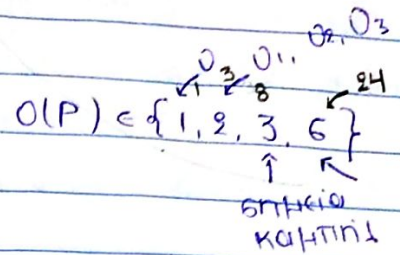 O₁, O₂, O₃
1 3 8 24
O(P) ∈ {1, 2, 3, 6}
σημεία
καμπής